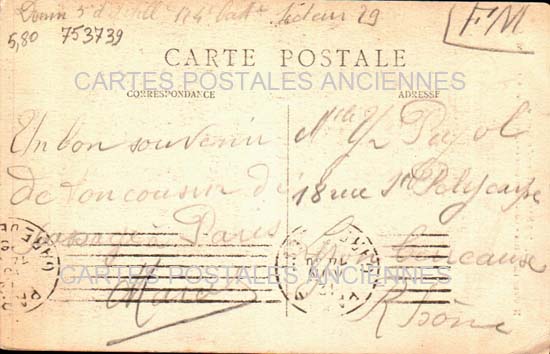 5,80 753739
FM
CARTE POSTALE
CARTES POSTALES ANCIENNES
CORRESPONDANCE
ADRESSE
Un bon souvenir
de ton cousin de
passage à Paris
Marc
Mlle Y Pujol
18 rue St Polycarpe
Lyon
Rhône
CARTES POSTALES ANCIENNES